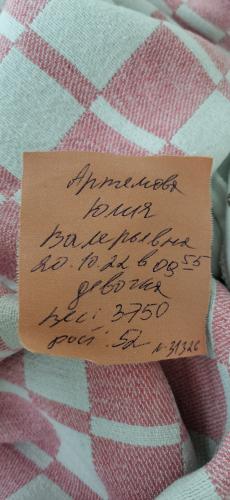 Артемова
Юлия
Валерьевна
20.10.22 в 09 55
девочка
вес: 3750
рост: 52 А-31326